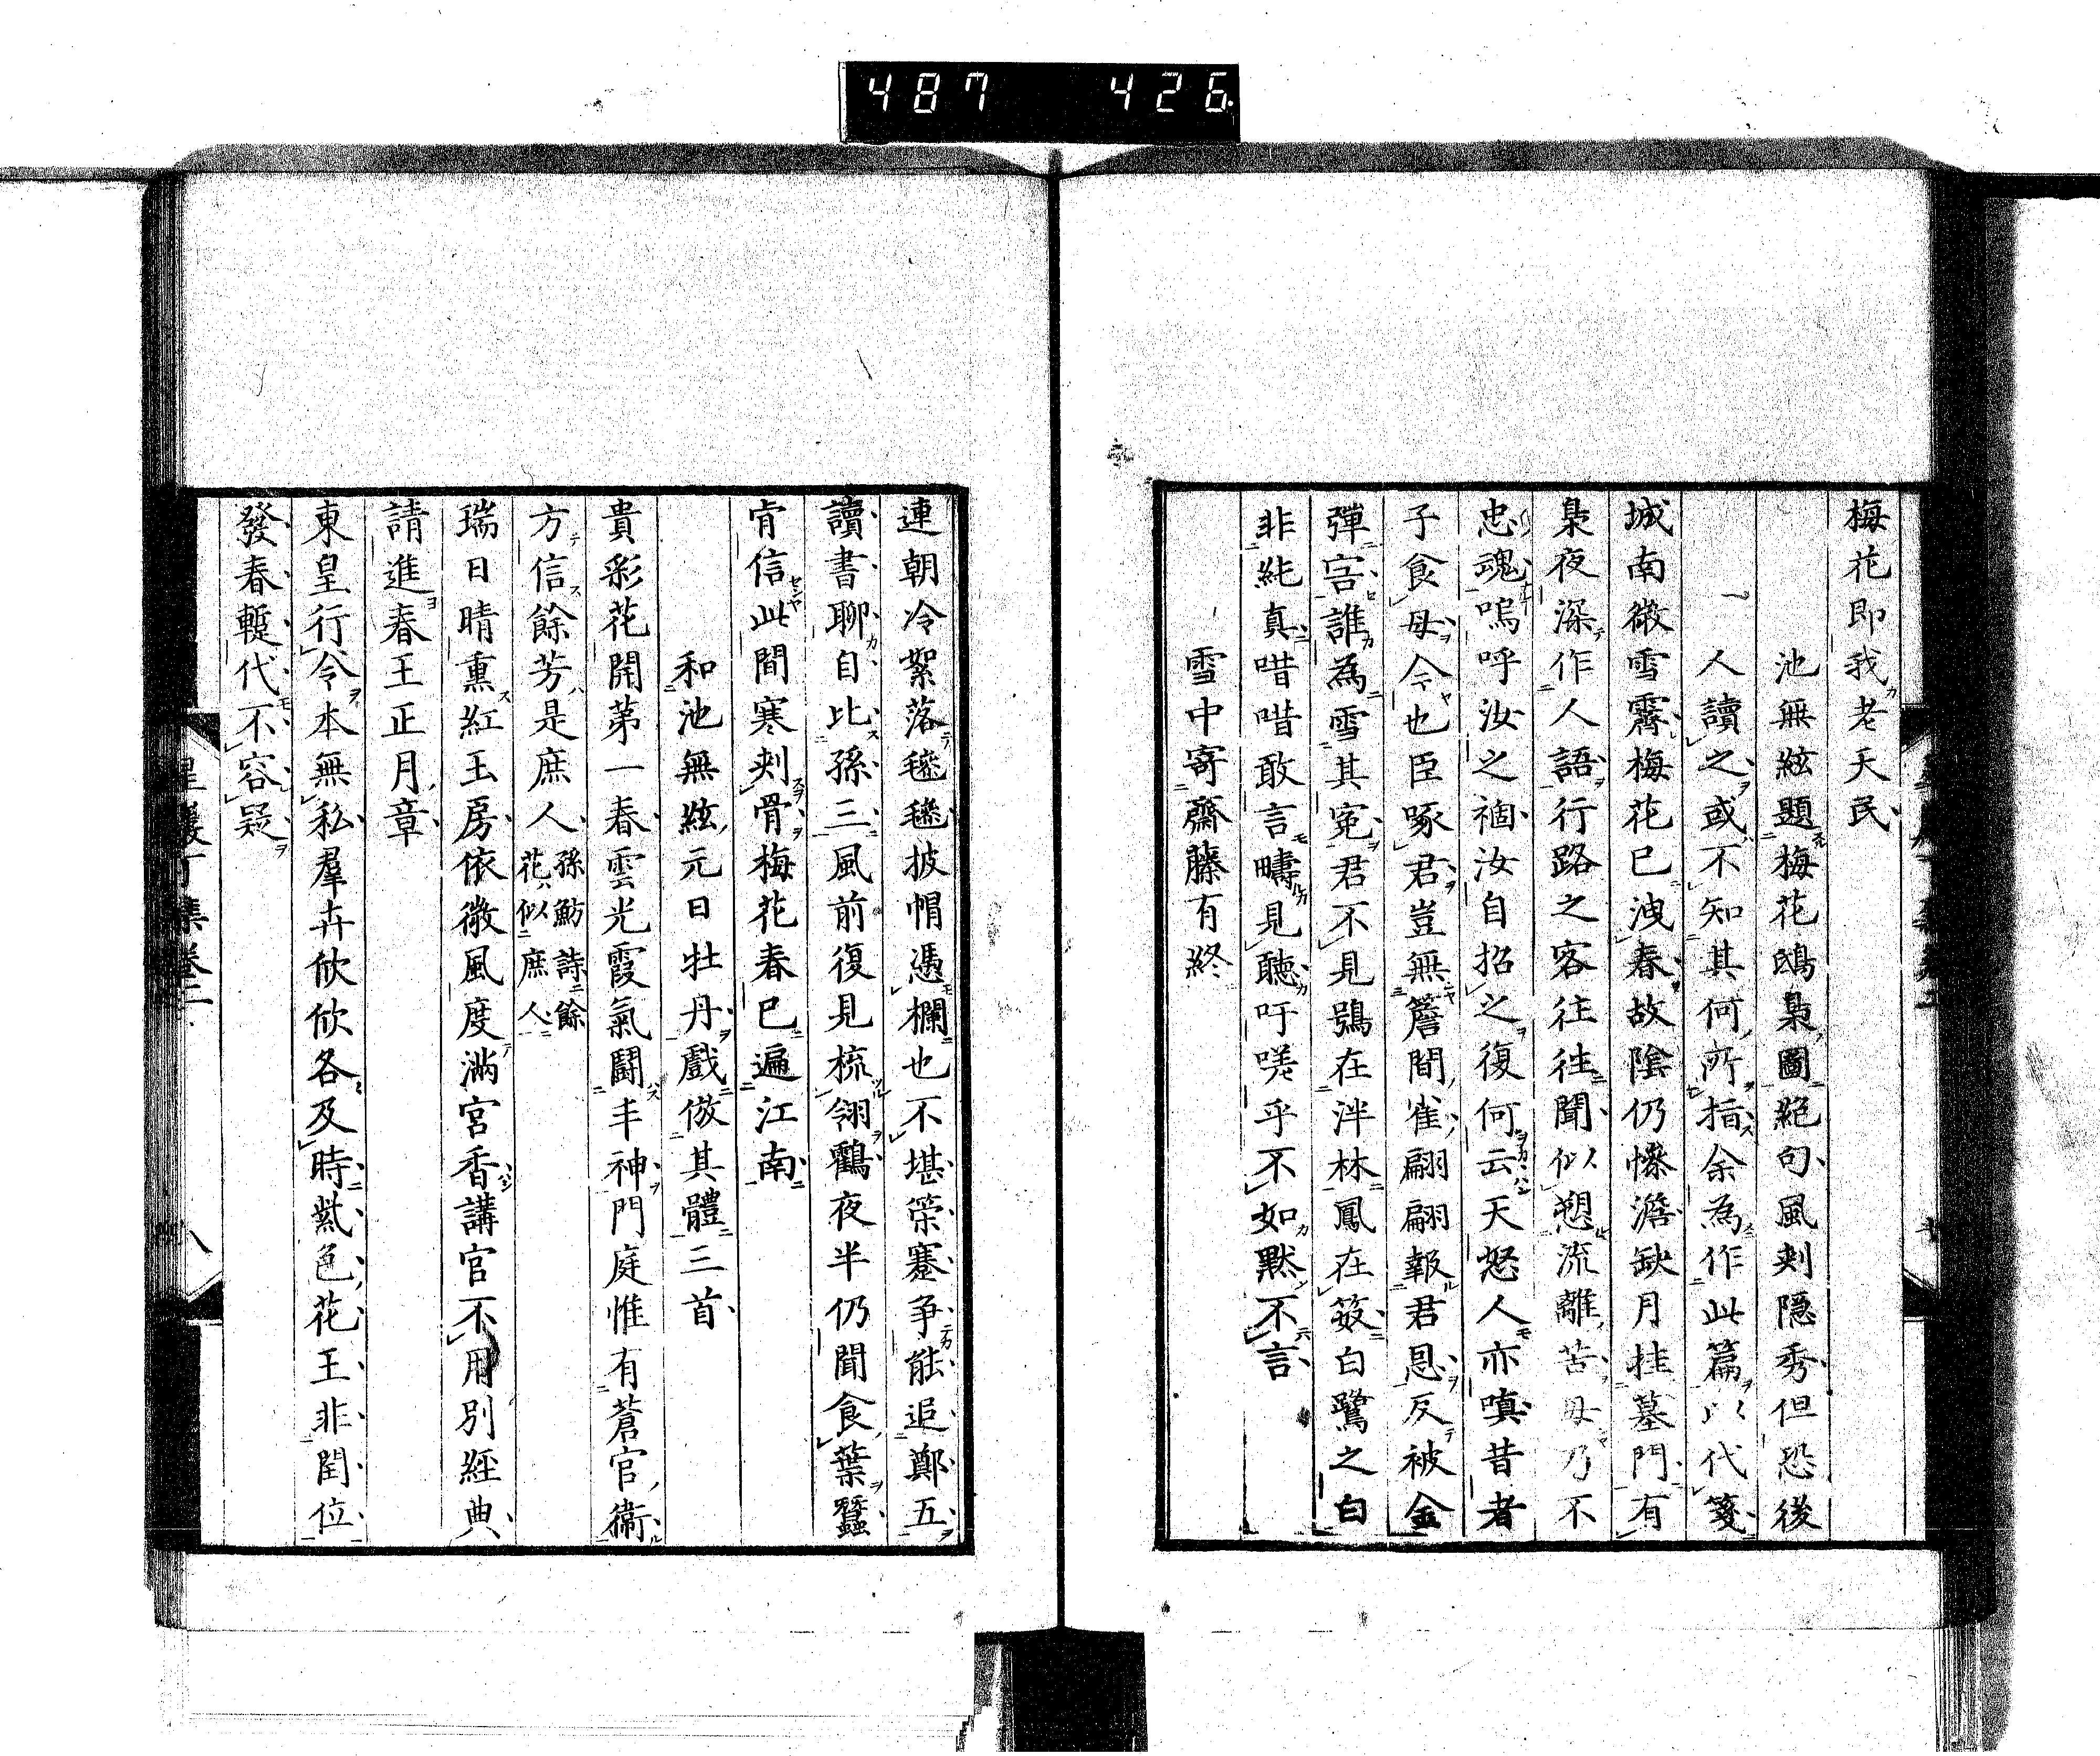 487 426
梅花即我老天民
池無絃題梅花鴟梟圖絕句風刺隱秀但恐後
人讀之或不知其何所指余為作此篇以代箋
城南微雪霽梅花已洩春故陰仍慘澹缺月挂墓門有
梟夜深作人語行路之客往往聞似愬流離苦毋乃不
忠魂嗚呼汝之禍汝自招之復何云天怒人亦嗔昔者
子食母今也臣啄君豈無簷間雀翩翩報君恩反被金
彈害誰為雪其冤君不見鴞在泮林鳳在笯白鷺之白
非純真唶唶敢言疇見聽吁嗟乎不如默不言
雪中寄齋藤有終
連朝冷絮落毶毶披帽憑欄也不堪策蹇爭能追鄭五
讀書聊自比孫三風前復見梳翎鸛夜半仍聞食葉蠶
肯信此間寒刺骨梅花春已遍江南
和池無絃元日牡丹戲倣其體三首
貴彩花開第一春雲光霞氣鬪丰神門庭惟有蒼官衛
方信餘芳是庶人孫魴詩餘花似庶人
瑞日晴熏紅玉房依微風度滿宮香講官不用別經典
請進春王正月章
東皇行令本無私羣卉欣欣各及時紫色花王非閏位
發春蹔代不容疑
集卷二
八